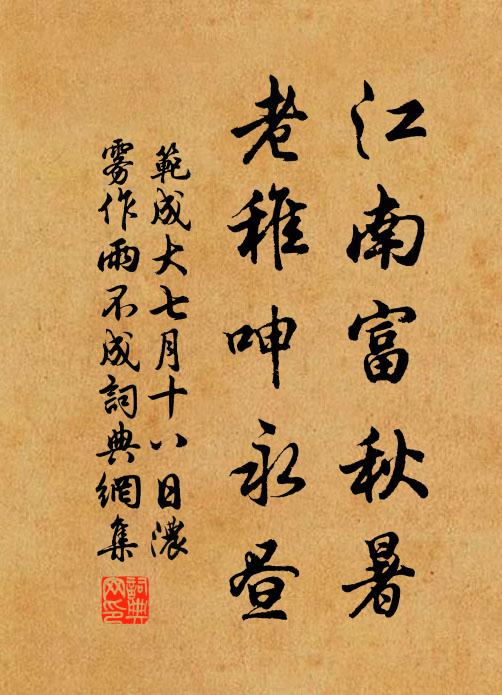 江南富秋暑
老稚呻永昼
範成大七月十八日濃
雾作雨不成詞典網集
詞典
网印